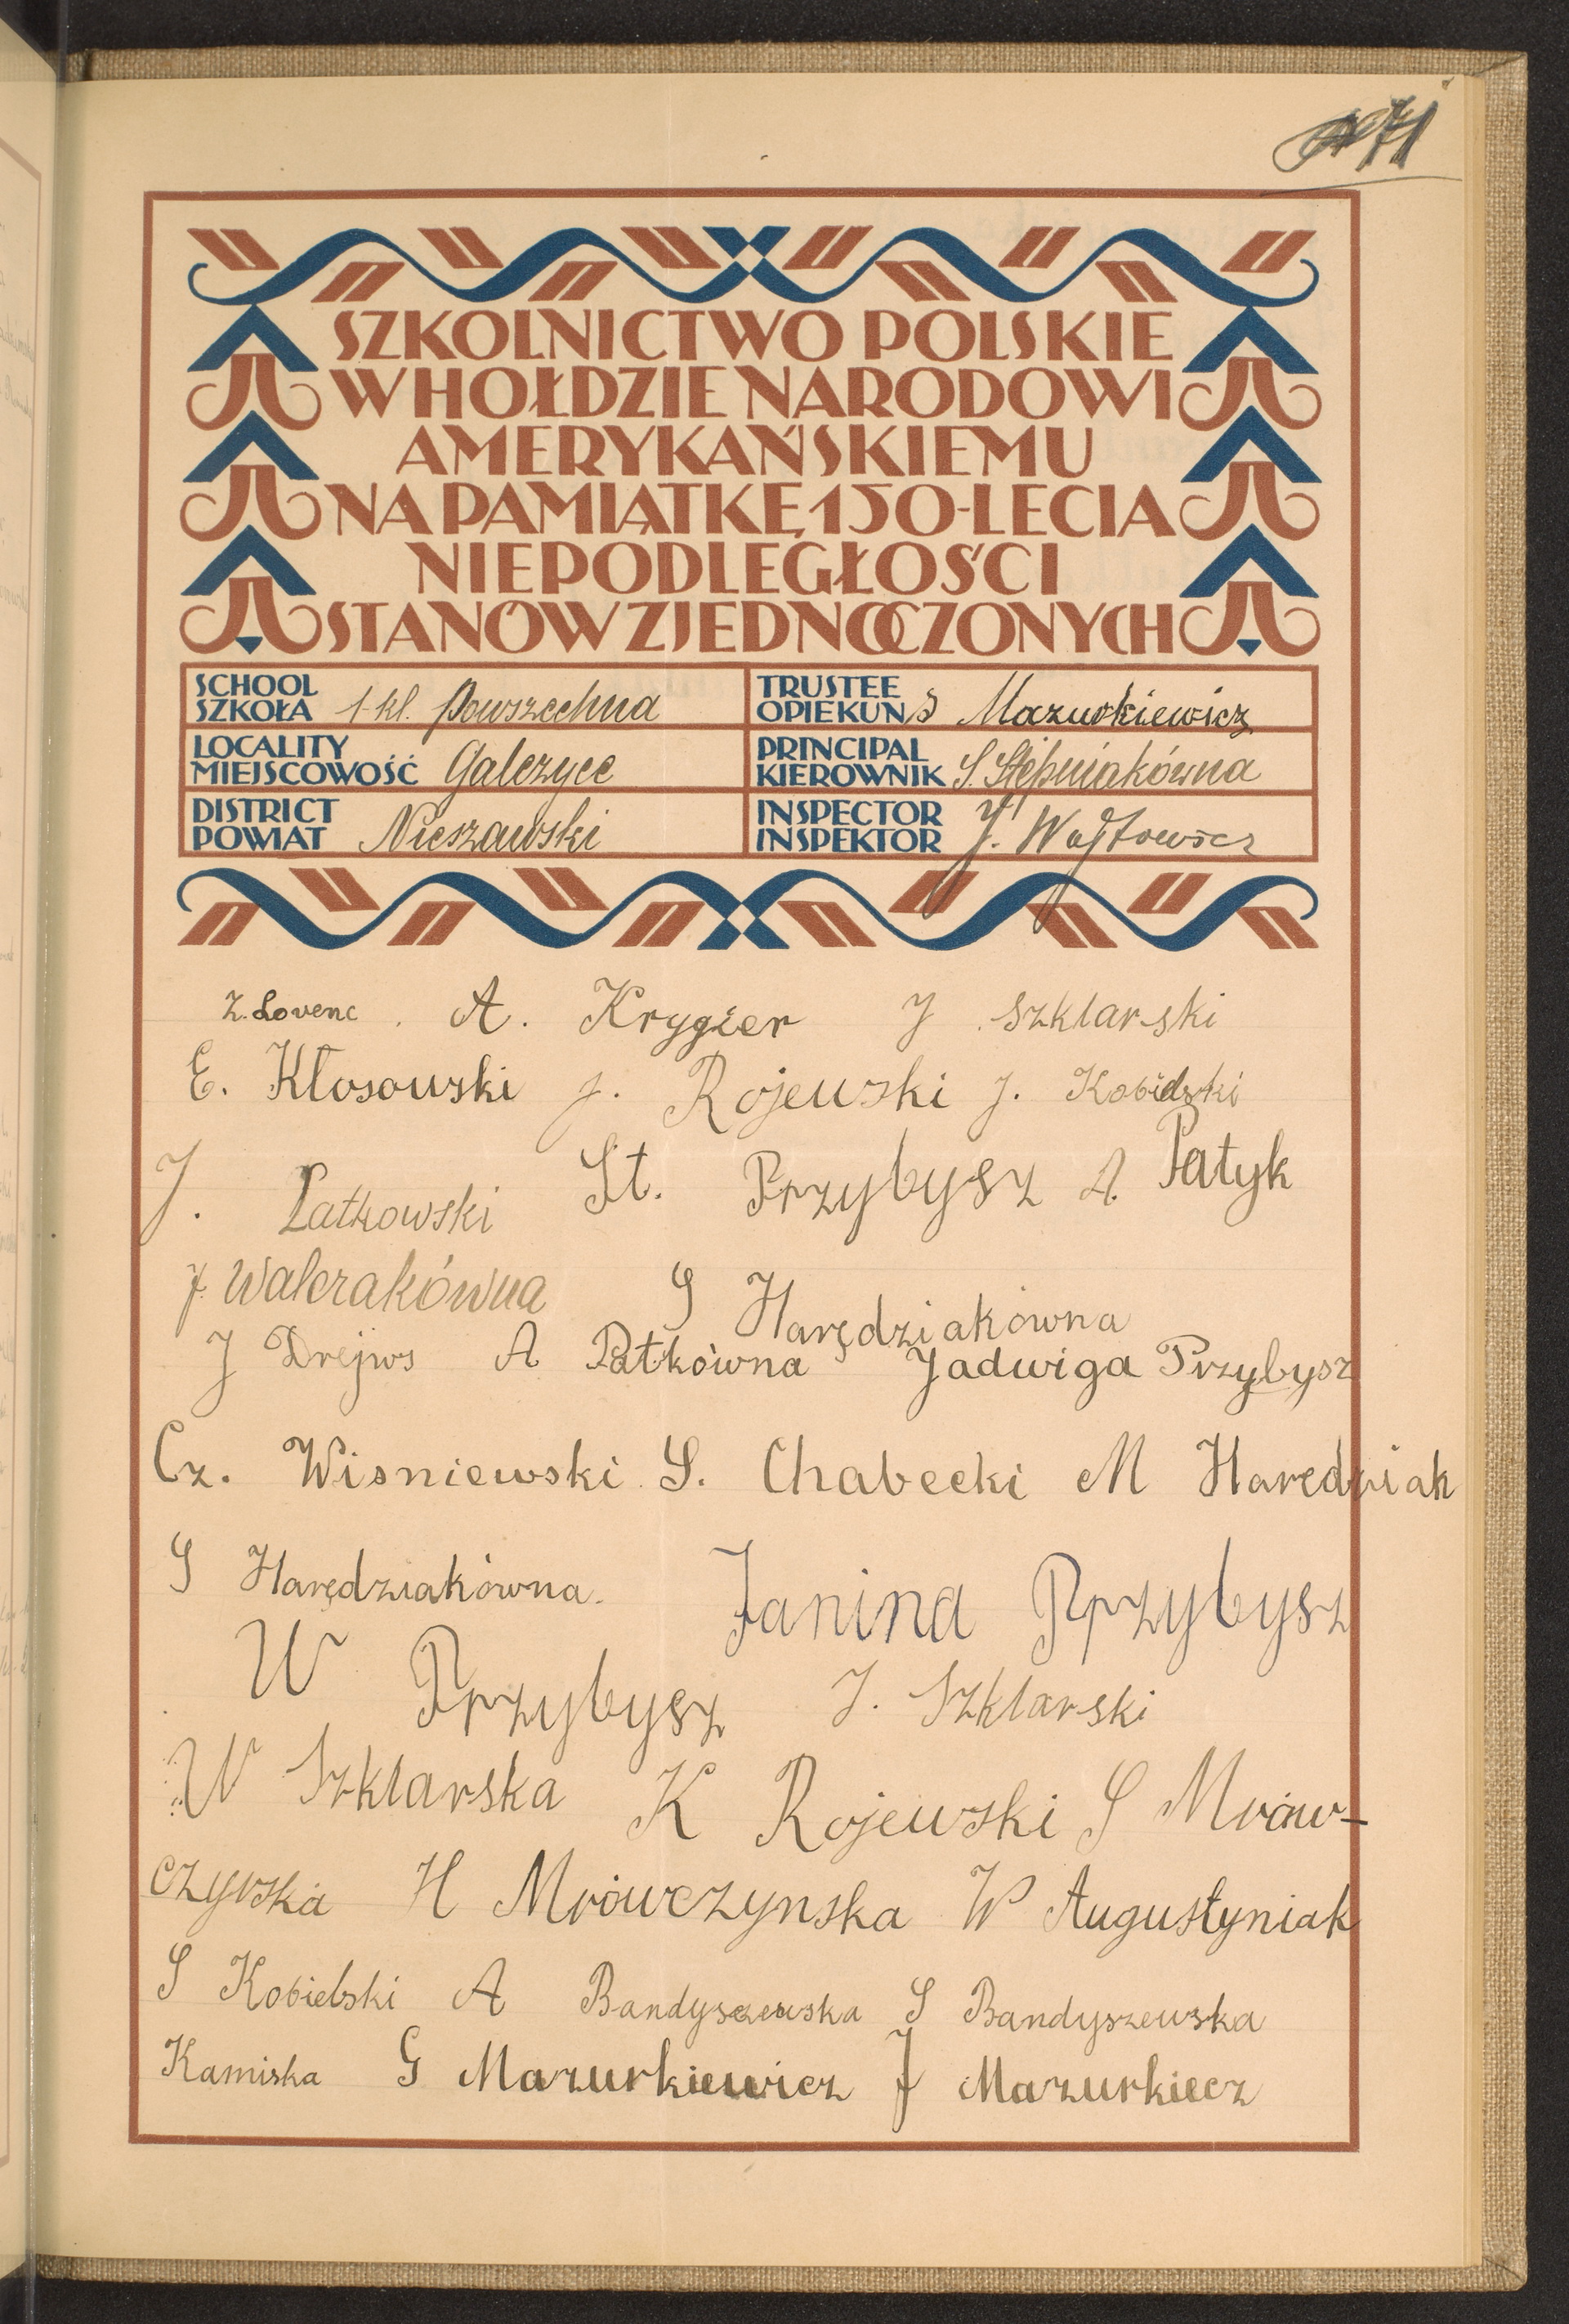 71
SZKOLNICTWO POLSKIE
W HOŁDZIE NARODOWI
AMERYKAŃSKIEMU
NA PAMIĄTKĘ 150-LECIA
NIEPODLEGŁOŚCI
STANÓW ZJEDNOCZONYCH
SCHOOL
SZKOŁA 1 kl. Powszechna
TRUSTEE
OPIEKUN S Mazurkiewicz
LOCALITY
MIEJSCOWOŚĆ Galczyce
PRINCIPAL
KIEROWNIK S. Stępniakówna
DISTRICT
POWIAT Nieszawski
INSPECTOR
INSPEKTOR J. Wójtowicz
Z. Lovenc. A. Krygier J Szklarski
E. Kłosowski J. Rojewski J. Kobielski
J. Patkowski St. Przybysz A. Patyk
J. Walczakówna S Harędziakówna
J Drejws A Patkówna Jadwiga Przybysz
Cz. Wisniewski S. Chabecki M Harędziak
S Harędziakówna. Janina Przybysz
W Przybysz J. Szklarski
W Szklarska K Rojewski S Mrów-
czynska H Mrówczynska W Augustyniak
S Kobielski A Bandyszewska S Bandyszewska
Kamiska G Mazurkiewicz J Mazurkiecz